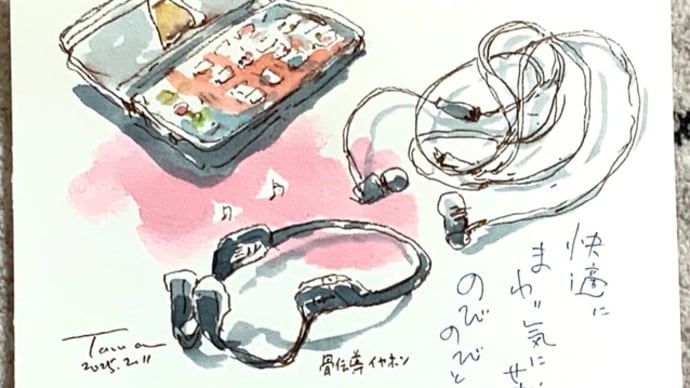 快適に
まわり気にせ
のびのびと
骨伝導イヤホン
2025.2.11